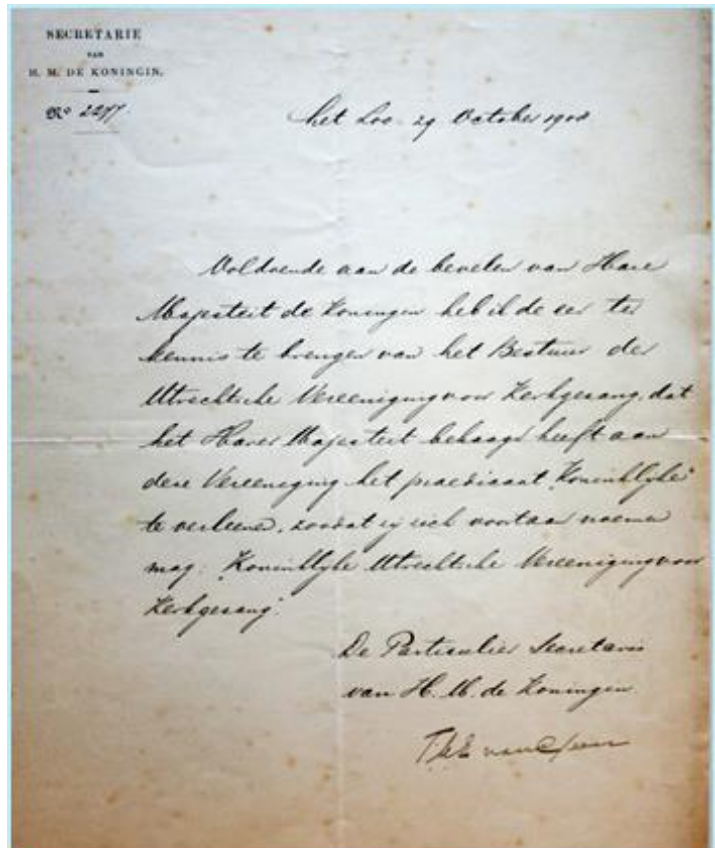 SECRETARIE
VAN
H. M. DE KONINGIN.
No 2277.
het Loo 29 October 1908
Voldoende aan de bevelen van Hare
Majesteit de Koningin heb ik de eer ter
kennis te brengen van het Bestuur der
Utrechtsche Vereeniging voor Kerkgezang, dat
het Harer Majesteit behaagd heeft aan
deze Vereeniging het praedicaat "Koninklijke"
te verleenen, zoodat zij zich voortaan noemen
mag: "Koninklijke Utrechtsche Vereeniging voor
Kerkgezang".
De Particulier Secretaris
van H. M. de Koningin
van